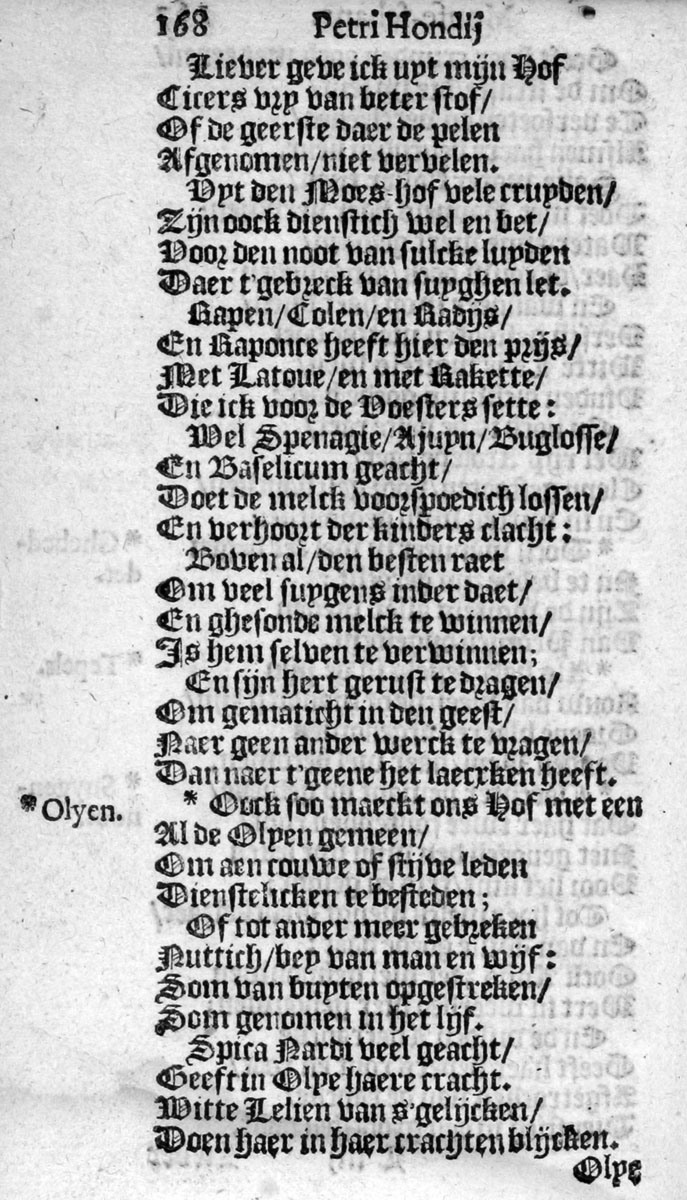 168 Petri Hondij
Liever geve ick uyt mijn Hof
Cicers vry van beter stof/
Of de geerste daer de pelen
Afgenomen/niet vervelen.
Uyt den Moes-hof vele cruyden/
Zijn oock dienstich wel en bet/
Voor den noot van sulcke luyden
Daer t'gebreck van suyghen let.
Rapen/Colen/en Radijs/
En Raponce heeft hier den prijs/
Met Latoue/en met Rakette/
Die ick voor de Voesters sette:
Wel Spenagie/Ajuyn/Buglosse/
En Baselicum geacht/
Doet de melck voorspoedich lossen/
En verhoort der kinders clacht:
Boven al/den besten raet
Om veel suygens inder daet/
En ghesonde melck te winnen/
Is hem selven te verwinnen;
En sijn hert gerust te dragen/
Om gematicht in den geest/
Naer geen ander werck te vragen/
Dan naer t'geene het laecxken heeft.
*Olyen. * Oock soo maeckt ons Hof met een
Al de Olyen gemeen/
Om aen couwe of stijve leden
Dienstelicken te besteden;
Of tot ander meer gebreken
Nuttich/bey van man en wijf:
Som van buyten opgestreken/
Som genomen in het lijf.
Spica Nardi veel geacht/
Geeft in Olye haere cracht.
Witte Lelien van s'gelijcken/
Doen haer in haer crachten blijcken.
Olye